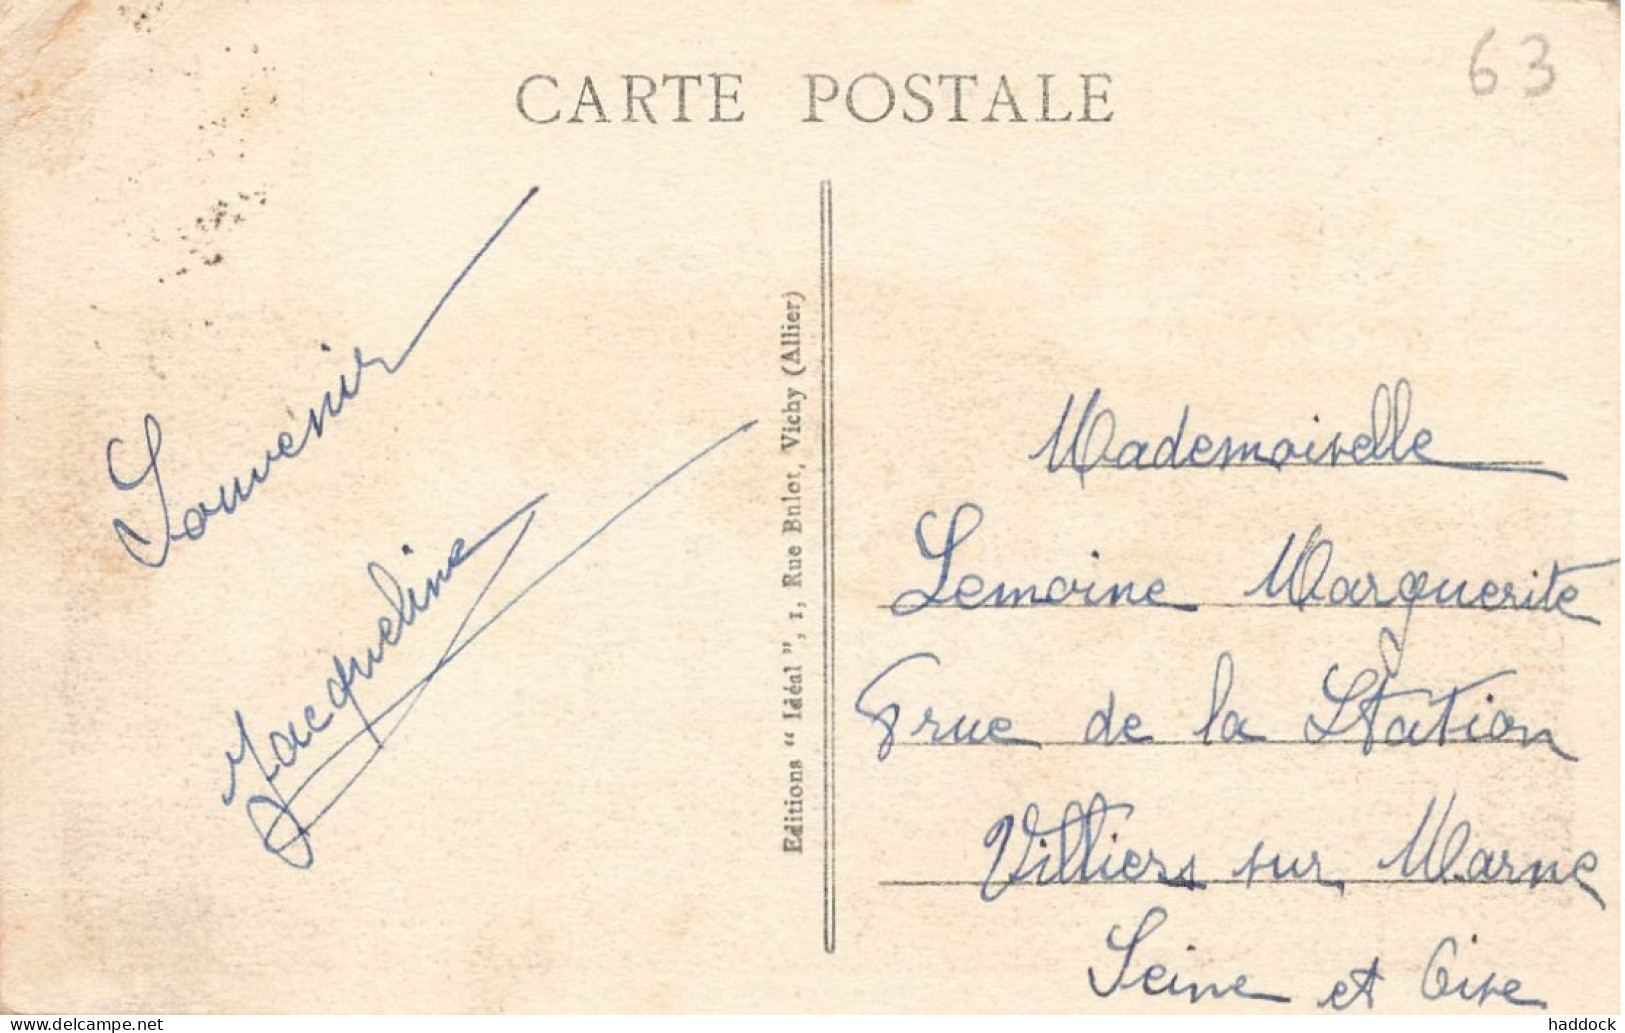 CARTE POSTALE
63
Souvenir
Jacqueline
Editions “ Idéal ”, 1, Rue Bulot, Vichy (Allier)
Mademoiselle
Lemoine Marguerite
8 rue de la Station
Villiers sur Marne
Seine et Oise
delcampe.net
haddock